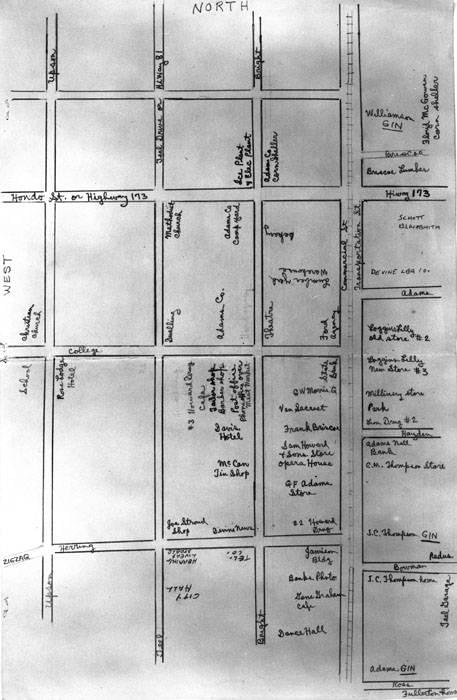 NORTH
Upson
Teel Drive or
Hiway 81
Bright
Williamson
GIN
Floyd McGowen
Corn Sheller
Ice Plant
+ Elec Plant
Adams Co.
Corn Sheller
Briscoe
Briscoe Lumber
Hondo St. or Highway 173
Hiwy 173
Methodist
Church
Adams Co
Camp Yard
Commercial St
Transportation St
SCHOTT
BLACKSMITH
DEVINE LBR CO.
Adams
WEST
Christian
Church
Dwelling
Adams Co.
Theatre
Ford
Agency
College
School
Rose Lodge
Hotel
#3 Howard Drug
Cafe
Tailor Shop
Barber Shop
Post Office
Meat Market
State
Bank
Davis
Hotel
McCan
Tin Shop
Joe Stroud
Shop
Devine News
G W Morris G
Van Sacrest
Frank Briscoe
Sam Howard
+ Sons Store
Opera House
G F Adams
Store
#2 Howard
Drug
old store #2
New Store #3
Millinery Store
Park
Drug #2
Hayden
Adams Natl
Bank
C.M. Thompson Store
J.C. Thompson GIN
Radus
Bowman
Herring
ZIGZAG
Upson
HERRING
LIVERY
STABLE
TEL.
CO.
CITY
HALL
Teel
Bright
Jamison
Bldg
Banks Photo
Gene Graham
Cafe
Dance Hall
J.C. Thompson home
Teel Garage
Adams GIN
Ross
Fullerton home